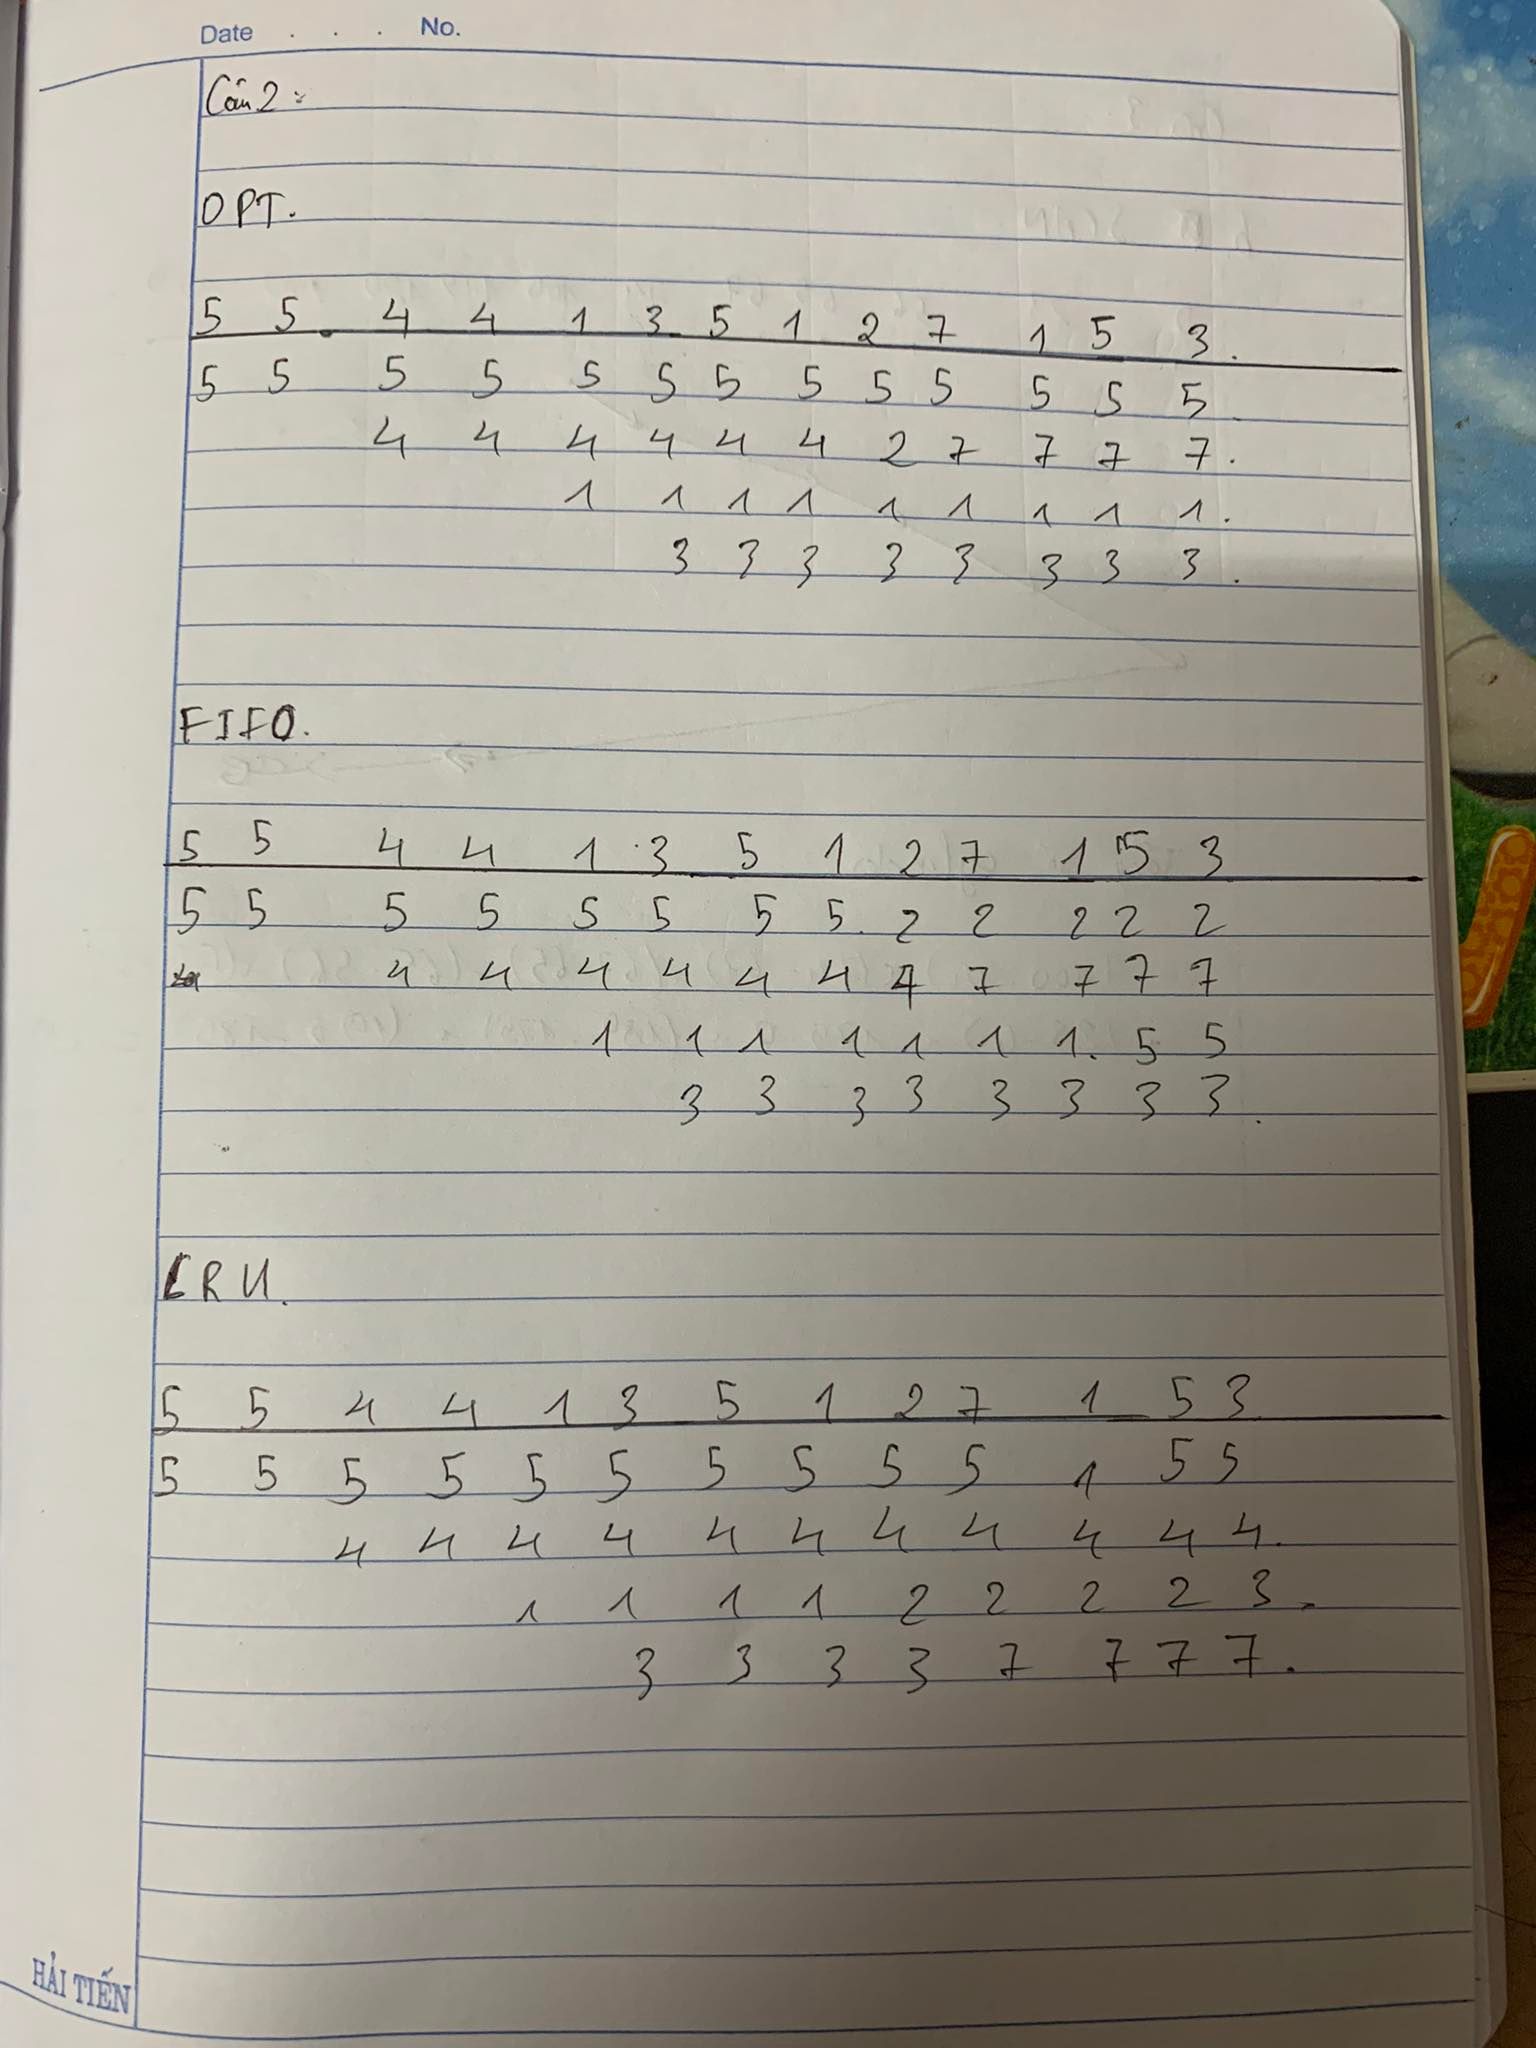 Date . . . No.
Câu 2 :
OPT.
5 5. 4 4 1 3. 5 1 2 7 1 5 3.
5 5 5 5 5 5 5 5 5 5 5 5 5.
4 4 4 4 4 4 2 7 7 7 7.
1 1 1 1 1 1 1 1 1.
3 3 3 3 3 3 3 3.
FIFO.
5 5 4 4 1 3 5 1 2 7 1 5 3
5 5 5 5 5 5 5 5. 2 2 2 2 2
4 4 4 4 4 4 4 7 7 7 7
1 1 1 1 1 1 1. 5 5
3 3 3 3 3 3 3 3.
LRU.
5 5 4 4 1 3 5 1 2 7 1 5 3
5 5 5 5 5 5 5 5 5 5 1 5 5
4 4 4 4 4 4 4 4 4 4 4.
1 1 1 1 2 2 2 2 3.
3 3 3 3 7 7 7 7.
HẢI TIẾN